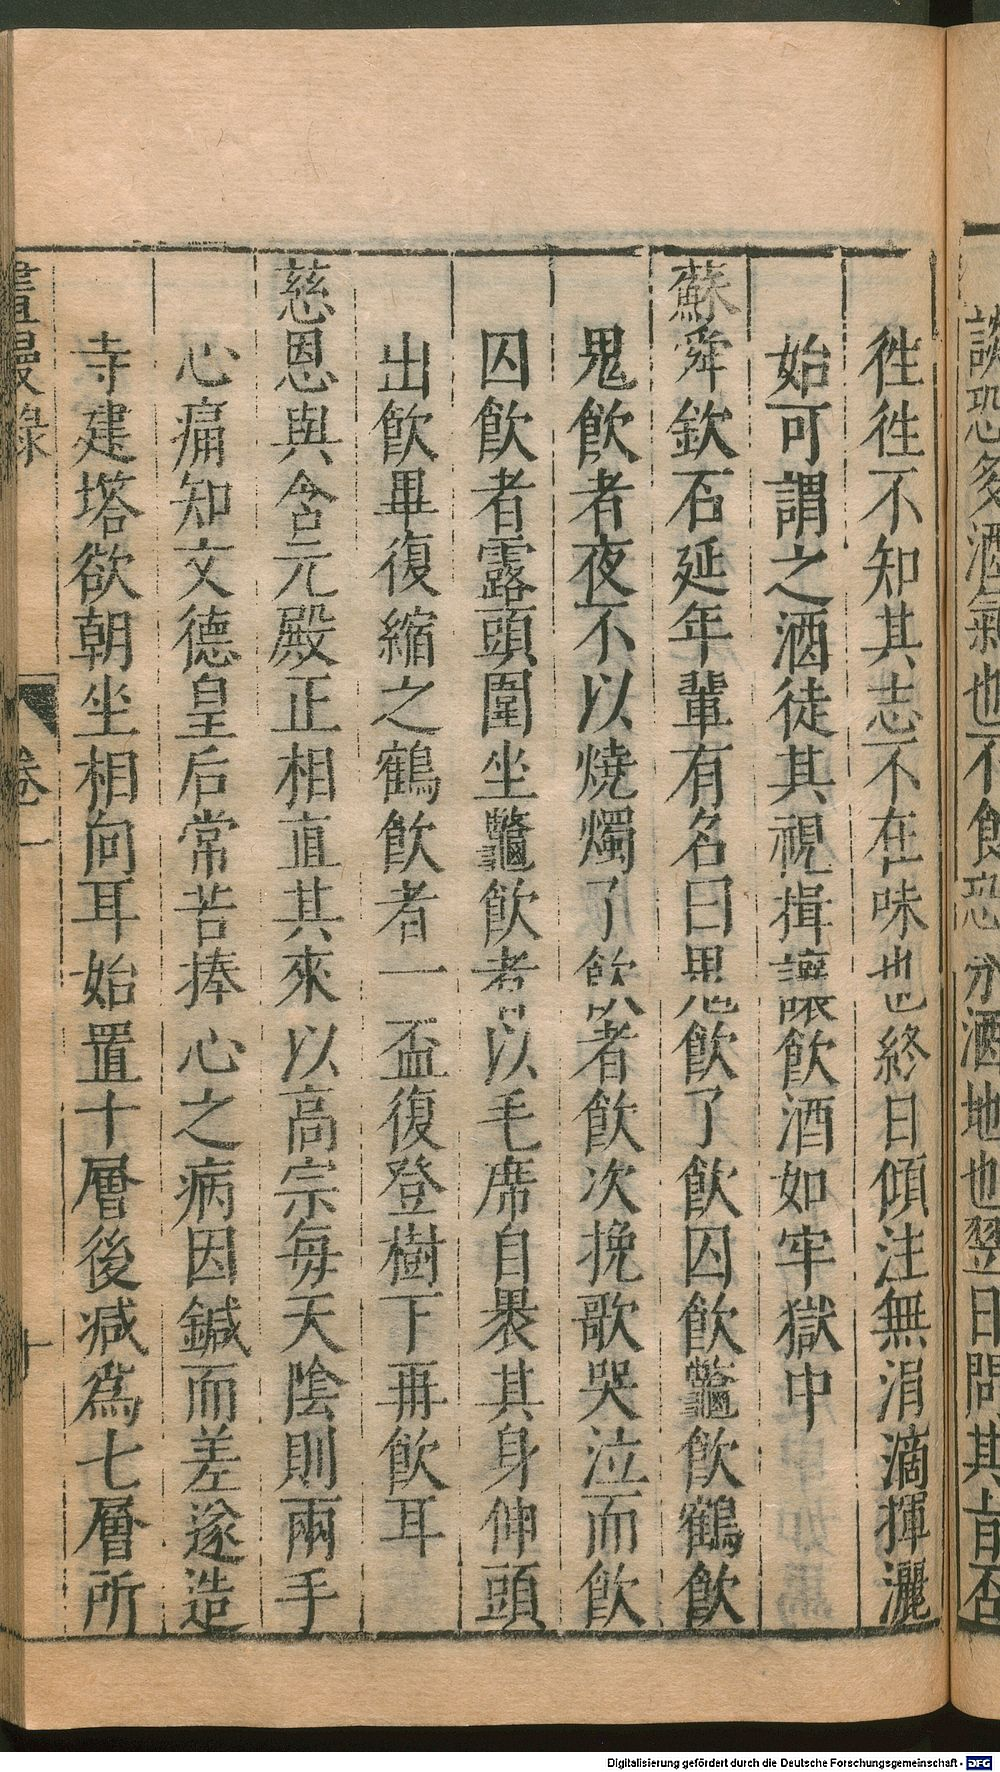 談恐多酒氣也不飲恐
酒地也翌日問其
徃徃不知其志不在味也終日傾注無涓滴揮灑
始可謂之酒徒其視揖讓飲酒如牢獄中
蘇舜欽石延年輩有名曰鬼飲了飲囚飲鼈飲鶴飲
鬼飲者夜不以燒燭了飲者飲次挽歌哭泣而飲
囚飲者露頭圍坐鼈飲者以毛席自褁其身伸頭
出飲畢復縮之鶴飲者一盃復登樹下再飲耳
慈恩與含元殿正相直其來以高宗每天陰則兩手
心痛知文德皇后常苦捧心之病因鍼而差遂造
寺建塔欲朝坐相向耳始置十層後減爲七層所
畫墁錄
卷一
十
Digitalisierung gefördert durch die Deutsche Forschungsgemeinschaft - DFG